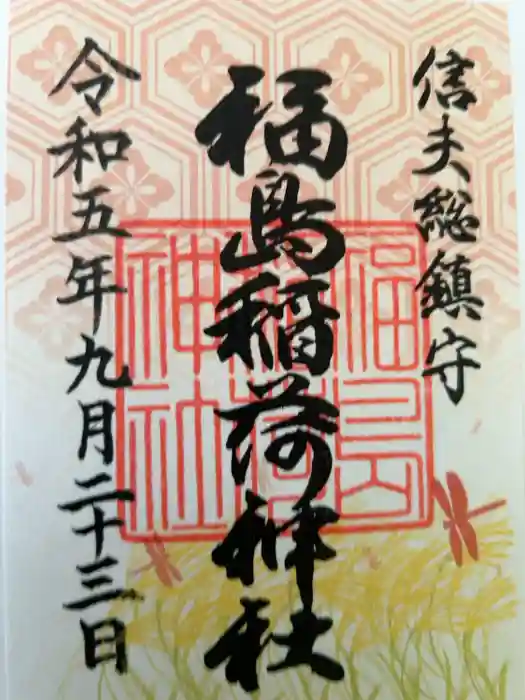 信夫総鎮守
福島稲荷神社
令和五年九月二十三日
福島
稲荷
神社